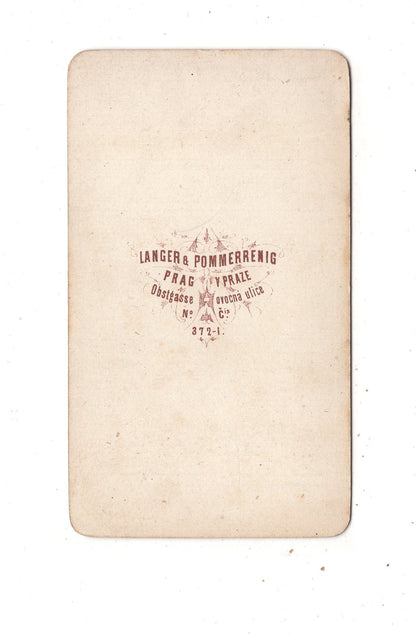 LANGER & POMMERRENIG
PRAG V PRAZE
Obstgasse ovocná ulice
No čís
372-I.